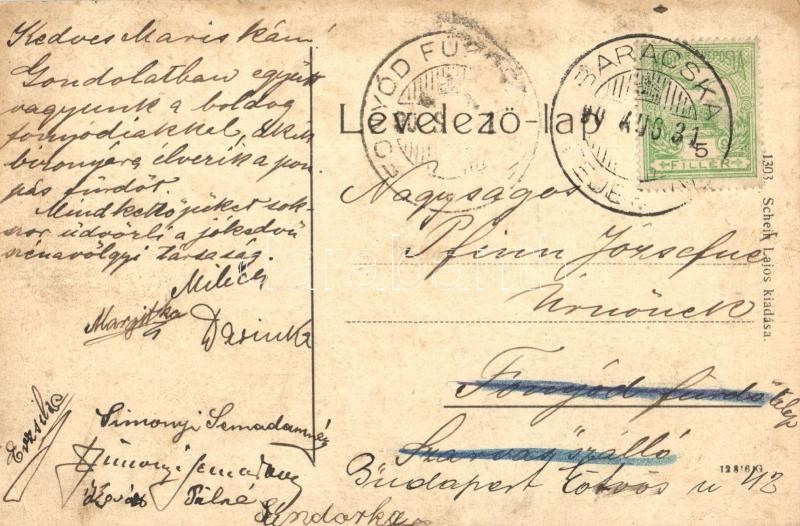 Kedves Mariskám!
Gondolatban együtt
vagyunk a boldog
fonyódiakkel, akik
bizonyára élvezik a pom-
pás fürdőt.
Mindkettőjüket sok-
szor üdvözli a jókedvű
szénavölgyi társaság.
Milica
Margitka
Darinka
Erzsike
Simonyi Semadamné
Simonyi Semadam
Kovács Pálné
Sándorka
FONYÓD FÜRDŐ
BARACSKA
AUG 31
5
FILLÉR
Levelező-lap
Nagyságos
Pfinn Józsefné
Úrnőnek
Fonyód fürdőtelep
"Szarvas" szálló
Budapest Eötvös u 42
1303 Scheih Lajos kiadása.
darabanth